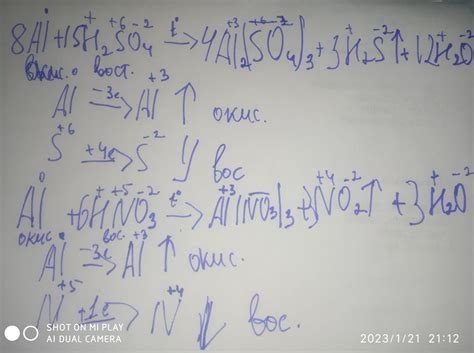 8Al + 15H₂SO₄ →(t) 4Al₂(SO₄)₃ + 3H₂S↑ + 12H₂O
окис. вост.
Al -3e→ Al⁺³ ↑ окис.
S⁺⁶ +4e→ S⁻² вос
Al + 6HNO₃ →(t) Al(NO₃)₃ + 3NO₂↑ + 3H₂O
окис. вос.
Al -3e→ Al⁺³ ↑ окис.
N⁺⁵ +1e→ N⁺⁴ вос.
SHOT ON MI PLAY
AI DUAL CAMERA
2023/1/21 21:12